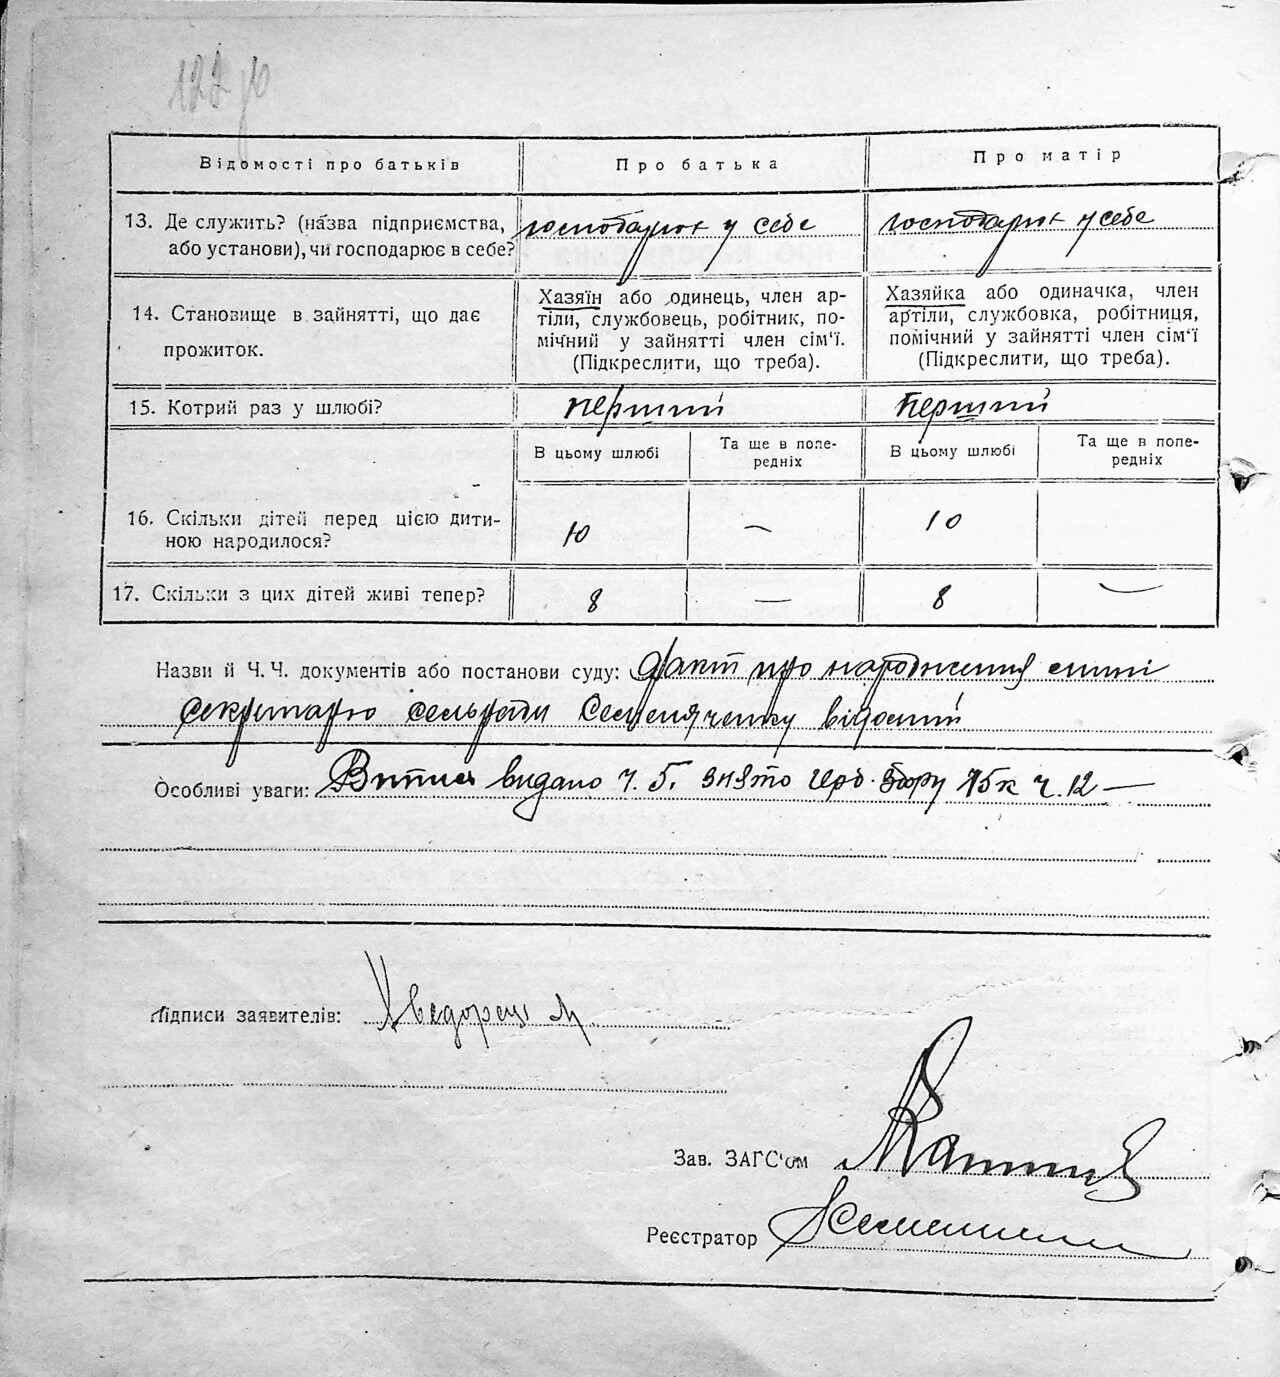 Відомості про батьків
Про батька
Про матір
13. Де служить? (назва підприємства,
або установи), чи господарює в себе?
господарює у себе
господарює у себе
14. Становище в зайнятті, що дає
прожиток.
Хазяїн або одинець, член ар-
тіли, службовець, робітник, по-
мічний у зайнятті член сім'ї.
(Підкреслити, що треба).
Хазяйка або одиначка, член
артіли, службовка, робітниця,
помічний у зайнятті член сім'ї
(Підкреслити, що треба).
15. Котрий раз у шлюбі?
перший
перший
В цьому шлюбі
Та ще в попе-
редніх
В цьому шлюбі
Та ще в попе-
редніх
16. Скільки дітей перед цією дити-
ною народилося?
10
—
10
17. Скільки з цих дітей живі тепер?
8
—
8
—
Назви й Ч. Ч. документів або постанови суду: факт про народження
секретарю сельради відомий
Особливі уваги: Витяг видано ч. 5. знято герб. збору 15 к ч. 12 —
Підписи заявителів:
Зав. ЗАГС'ом
Реєстратор